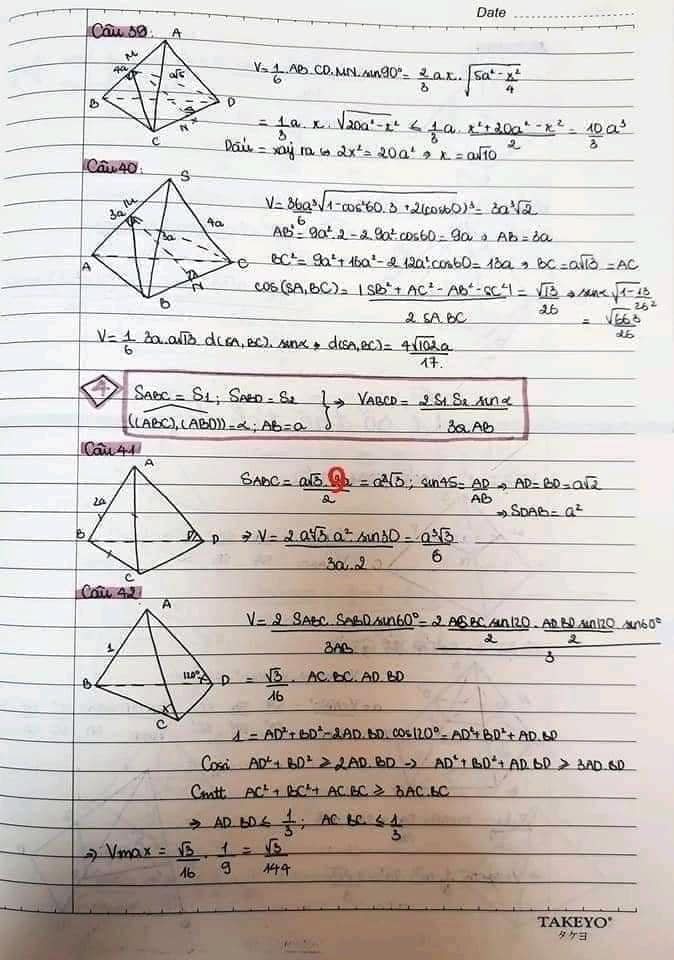 Date
Câu 39:
A
M
4a
a√5
B
D
N
x
C
V = 1/6 AB.CD.MN.sin90° = 2/3 ax.√(5a² - x²/4)
= 1/3 a.x.√(20a² - x²) ≤ 1/3 a.(x² + 20a² - x²)/2 = 10/3 a³
Dấu = xảy ra ⇔ 2x² = 20a² ⇒ x = a√10
Câu 40
S
M
3a
4a
3a
A
C
N
B
V = 36a³/6 √(1 - cos²60.3 + 2(cos60)³) = 3a³√2
AB² = 9a².2 - 2.9a²cos60 = 9a ⇒ AB = 3a
BC² = 9a² + 16a² - 2.12a².cos60 = 13a ⇒ BC = a√13 = AC
cos(SA,BC) = |SB² + AC² - AB² - SC²|/(2SA.BC) = √13/26 ⇒ sinα √(1 - 13/26²)
= √663/26
V = 1/6 3a.a√13 d(SA,BC).sinα ⇒ d(SA,BC) = 4√102a/17.
4
SABC = S1; SABD = S2
((ABC),(ABD)) = α; AB = a
} ⇒ VABCD = 2S1S2 sinα/3a.AB
Câu 41
A
2a
B
D
C
SABC = a√3.2a/2 = a²√3; sin45 = AD/AB ⇒ AD = BD = a√2
⇒ SDAB = a²
⇒ V = 2a²√3.a² sin30/3a.2 = a³√3/6
Câu 42
A
1
B
120°
D
C
V = 2 SABC.SABD sin60°/3AB = 2 AC.BC sin120/2 . AD.BD sin120/2 . sin60°/3
= √3/16 . AC.BC.AD.BD
1 = AD² + BD² - 2AD.BD.cos120° = AD² + BD² + AD.BD
Cosi AD² + BD² ≥ 2AD.BD → AD² + BD² + AD.BD ≥ 3AD.BD
Cmtt AC² + BC² + AC.BC ≥ 3AC.BC
⇒ AD.BD ≤ 1/3; AC.BC ≤ 1/3
⇒ Vmax = √3/16 . 1/9 = √3/144
TAKEYO®
タケヨ